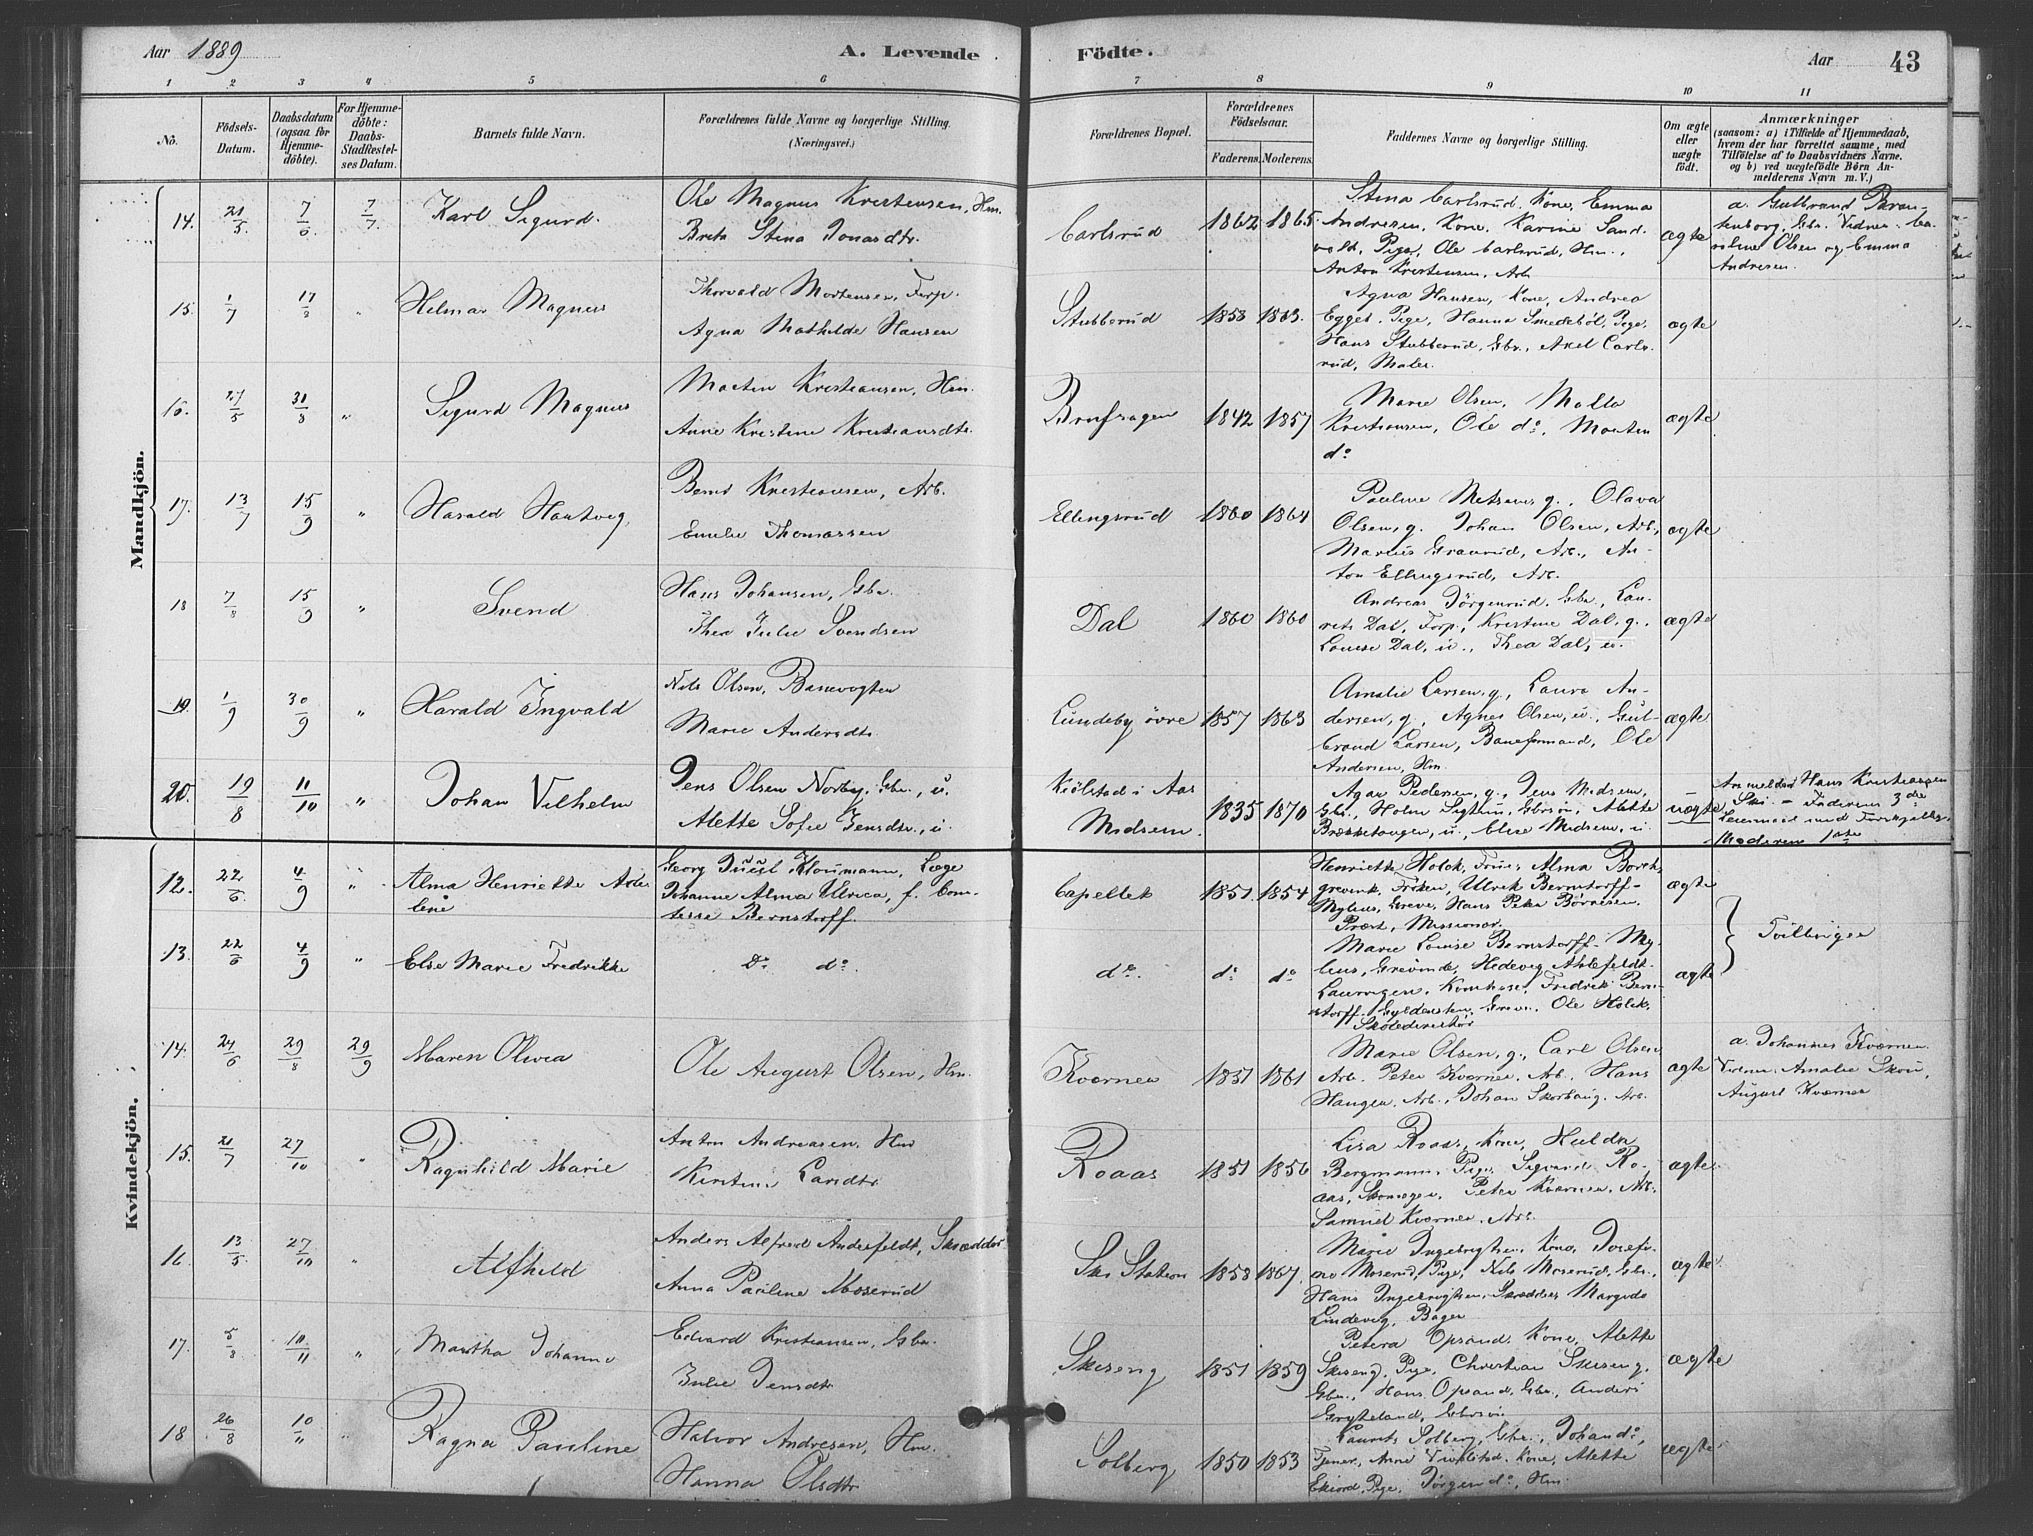 Aar 1889
A. Levende
Födte.
Aar
43
1 2 3 4 5 6 7 8 9 10 11
No.
Födsels-Datum.
Daabsdatum (ogsaa for Hjemme-döbte).
For Hjemme-döbte: Daabs-Stadfæstel-ses Datum.
Barnets fulde Navn.
Forældrenes fulde Navne og borgerlige Stilling.
(Næringsvei.)
Forældrenes Bopæl.
Forældrenes Födselsaar.
Faderens. Moderens.
Faddernes Navne og borgerlige Stilling.
Om ægte eller uægte födt.
Anmærkninger
(saasom: a) i Tilfælde af Hjemmedaab,
hvem der har forrettet samme, med
Tilföielse af to Daabsvidners Navne.
og b) ved uægtefödte Börn An-
melderens Navn m. V.)
Mandkjön.
14. 21/5 7/6 7/7 Karl Sigurd.
Ole Magnus Kristensen, Hm.
Brita Stina Jonasdtr.
Carlsrud 1862 1865.
Stina Carlsrud, Kone, Emma
Andresen, Kone, Karine Sand-
vold, Pige, Ole Carlsrud, Hm.,
Anton Kristensen, Arb.
ægte
a. Gulbrand Bran-
denborg, Gbr. Vidner: Ca-
roline Olsen og Emma
Andresen.
15. 1/7 17/8 " Helmar Magnus
Thorvald Mortensen, Forp.
Agna Mathilde Hansen
Stubberud 1858 1863.
Agna Hansen, Kone, Andrea
Egget, Pige, Hanna Smedsböl, Pige,
Hans Stubberud, Gbr., Axel Carls-
rud, Maler.
ægte
16. 27/5 31/8 " Sigurd Magnus
Martin Kristiansen, Hm.
Anne Kristine Kristiansdtr.
1842 1857
Marie Olsen, Malla
Kristiansen, Ole do., Martin
do
ægte
17. 13/7 15/9 " Harald Hartvig
Bernt Kristiansen, Arb.
Emilie Thomassen
Ellingsrud 1860 1864
Pauline g., Olava
Olsen, g. Johan Olsen, Arb.,
Marius Graarud, Arb., An-
ton Ellingsrud, Arb.
ægte
18 7/8 15/9 " Svend
Hans Johansen, Gbr.
Thea Julie Svendsen
Dal 1860 1860
Andreas Jörgenrud, Gbr., Lau-
rits Dal, Forp., Kristine Dal, g.,
Louise Dal, u., Thea Dal, u.
ægte
19. 1/9 30/9 " Harald Ingvald
Nils Olsen, Banevogter
Marie Andersdtr
Lundeby övre 1857 1863
Amalie Larsen, g., Laura An-
dersen, g., Agnes Olsen, u., Gul-
brand Larsen, Baneformand, Ole
Andersen, Hm.
ægte
20. 19/8 11/10 " Johan Vilhelm
Jens Olsen Norby, Gbr., u.
Alette Sofie Jensdtr., u.
Kjölstad i Aas
Midsem 1835 1870
Agar Pedersen, g., Jens Midsem,
Gbr., Holm Sigtun, Gbrsön, Alette
Brækketangen, u., Elise Midsem, u.
uægte
Anmelder Hans Kristiansen
Ski. – Faderens 3die
Leiermaal med Forskjellige,
Moderens 1ste
Kvindekjön.
12. 22/6 4/9 " Alma Henriette Ade-
line
Georg Juul Houmann, Læge
Johanne Alma Ulrica, f. Com-
tesse Bernstorff.
Capellet 1851. 1854
Henriette Holck, Frue, Alma Borch-
grevink, Fröken, Ulrik Bernstorff-
Mylius, Greve, Hans Peter Börresen,
Præst, Missionær.
ægte
Tvillinger
13. 22/6 4/9 " Else Marie Fredrikke
Do do.
do. do do
Marie Louise Bernstorff-My-
lius, Grevinde, Hedevig Ahlefeldt-
Laurvigen, Komtesse, Fredrik Bern-
storff-Gyldensten, Greve, Ole Holck,
Skoledirektör
ægte
14. 24/6 29/8 29/9 Maren Olivia
Ole August Olsen, Hm.
Kværner 1851 1861
Marie Olsen, g., Carl Olsen
Arb. Peter Kværner, Arb. Hans
Haugen, Arb., Johan Skorhaug, Arb.
ægte
a. Johannes Kværner.
Vidner: Amalie Skou,
August Kværner
15. 21/7 27/10 " Ragnhild Marie
Anton Andreasen, Hm
Kirstine Larsdtr
Roaas 1851 1856
Lisa Roaas, Kone, Hulda
Bergmann, Pige, Sigvard Ro-
aas, Skomager, Peter Kværner, Arb.
Samuel Kværner, Arb.
ægte.
16 13/5 27/10 " Alfhild
Anders Alfred Anderfeldt, Skrædder
Anna Pauline Moserud
Ski Station 1858 1867.
Marie Ingebrigtsen, Kone, Josefi-
ne Moserud, Pige, Nils Moserud, Gbr.,
Hans Ingebrigtsen, Skrædder, Margido
Lindevig, Bager
ægte.
17. 5/8 10/11 " Martha Johanne
Edvard Kristiansen, Gbr.
Julie Jensdtr
Skiseng 1851 1859
Petera Opsand, Kone, Alette
Skiseng, Pige, Christian Skiseng,
Gbr., Hans Opsand, Gbr., Anders
Gryteland, Gbrsön
ægte
18 26/8 10/11 " Ragna Pauline
Halvor Andresen, Hm.
Hanna Olsdtr
Solberg 1850 1853
Laurits Solberg, Gbr., Johan do.,
Tjener, Anne Kone, Alette
Pige, Jörgen do., Hm.
ægte